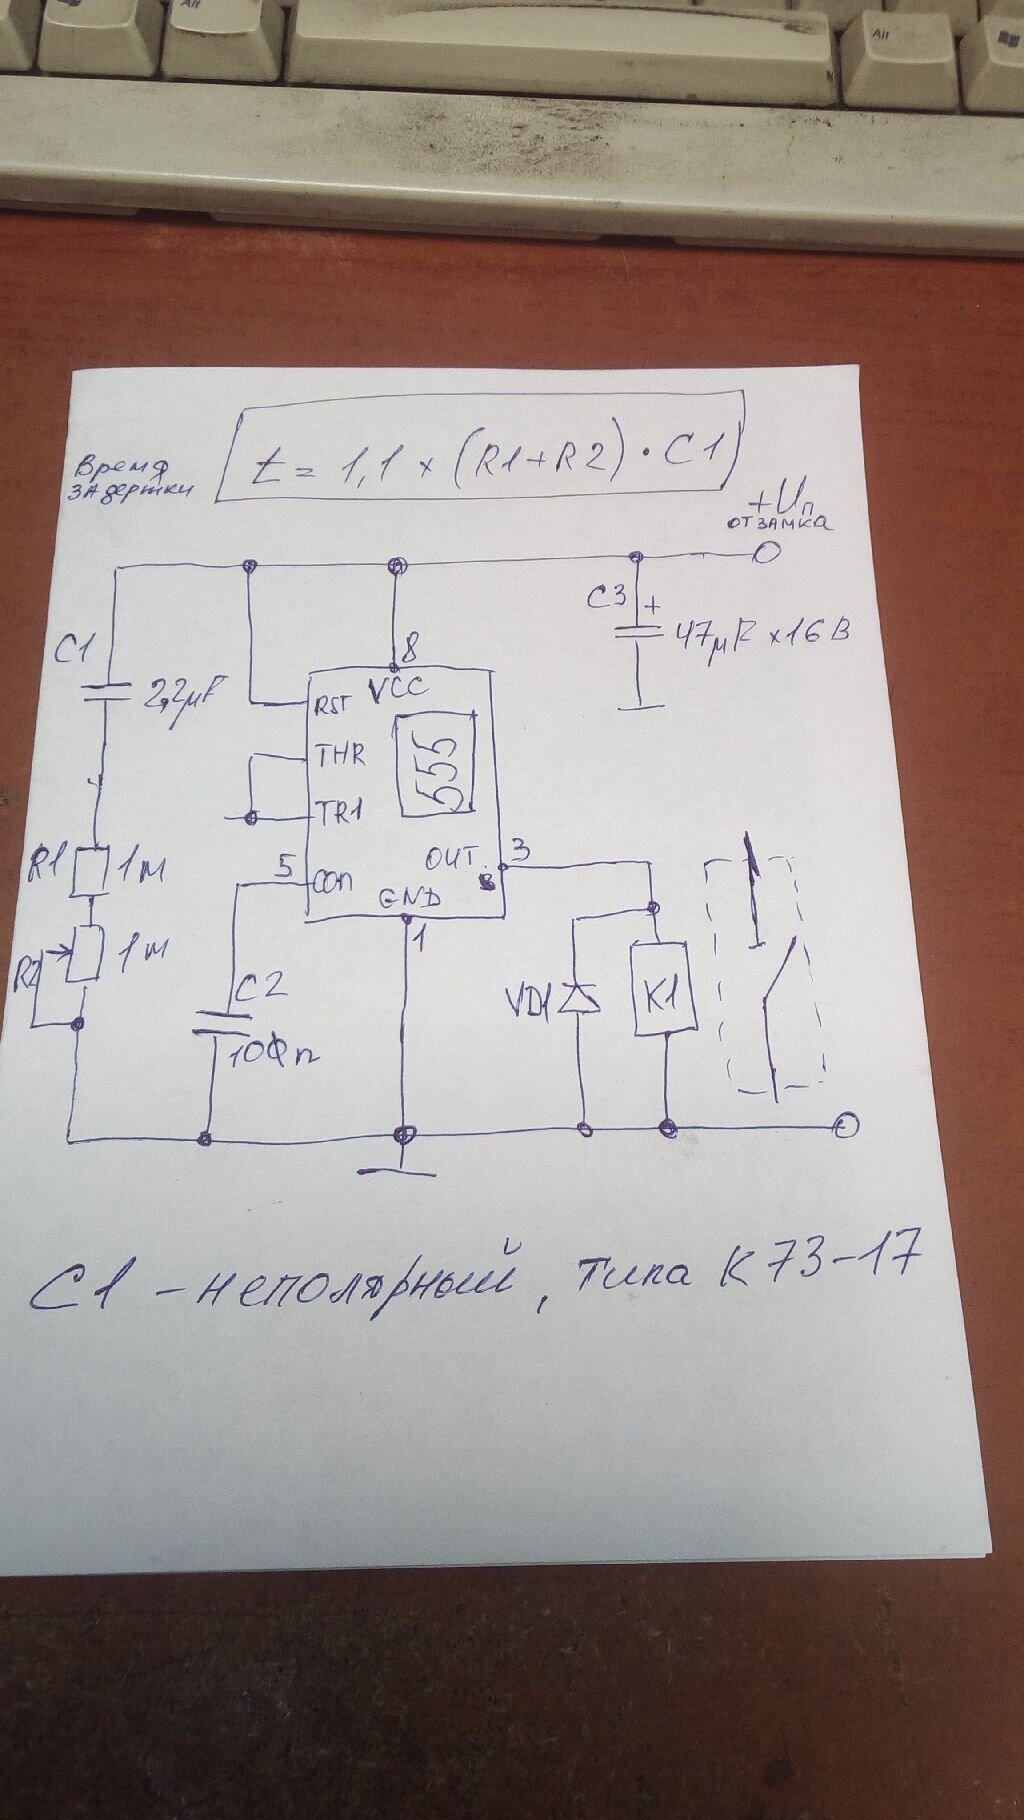 Alt
Alt
Время
задержки
t = 1,1 × (R1+R2) · C1
+Uп
от замка
C1
2,2μF
C3
+
47μF ×16В
8
VCC
RST
THR
TR1
555
5
CON
OUT
3
GND
1
R1
1м
R2
1м
C2
10Фn
VD1
K1
C1 – неполярный, типа К73–17